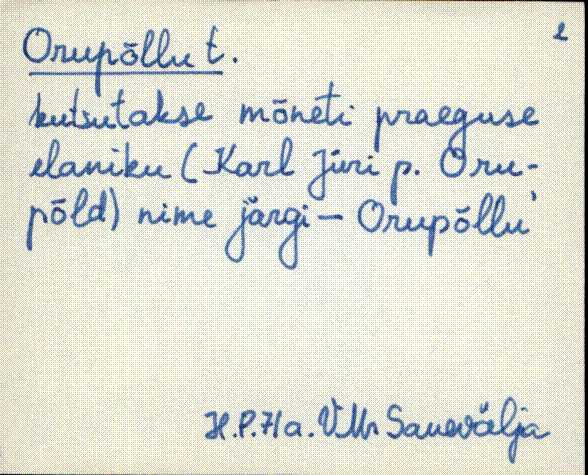 2
Orupõllu t.
kutsutakse mõneti praeguse
elaniku (Karl Jüri p. Oru-
põld) nime järgi – Orupõllu'
H.P. 71a. V.Mr Sauevälja